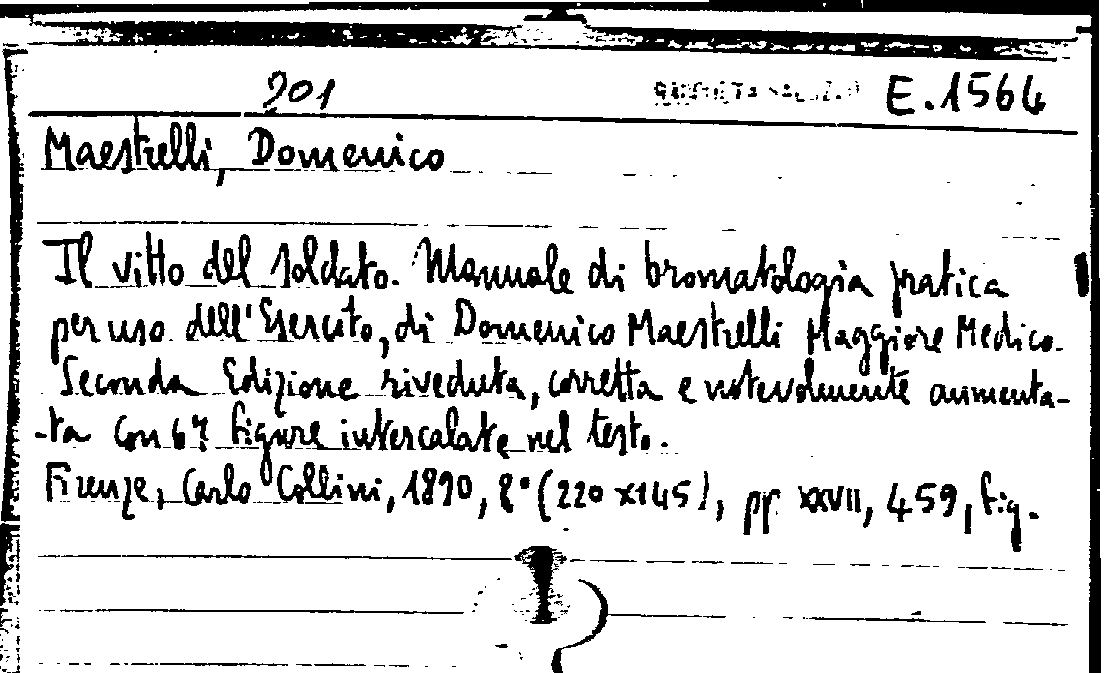 201 E.1564
Maestrelli, Domenico
Il vitto del soldato. Manuale di bromatologia pratica
per uso dell'Esercito, di Domenico Maestrelli Maggiore Medico.
Seconda Edizione riveduta, corretta e notevolmente aumenta-
-ta con 67 figure intercalate nel testo.
Firenze, Carlo Collini, 1890, 8° (220x145), pp XXVII, 459, fig.